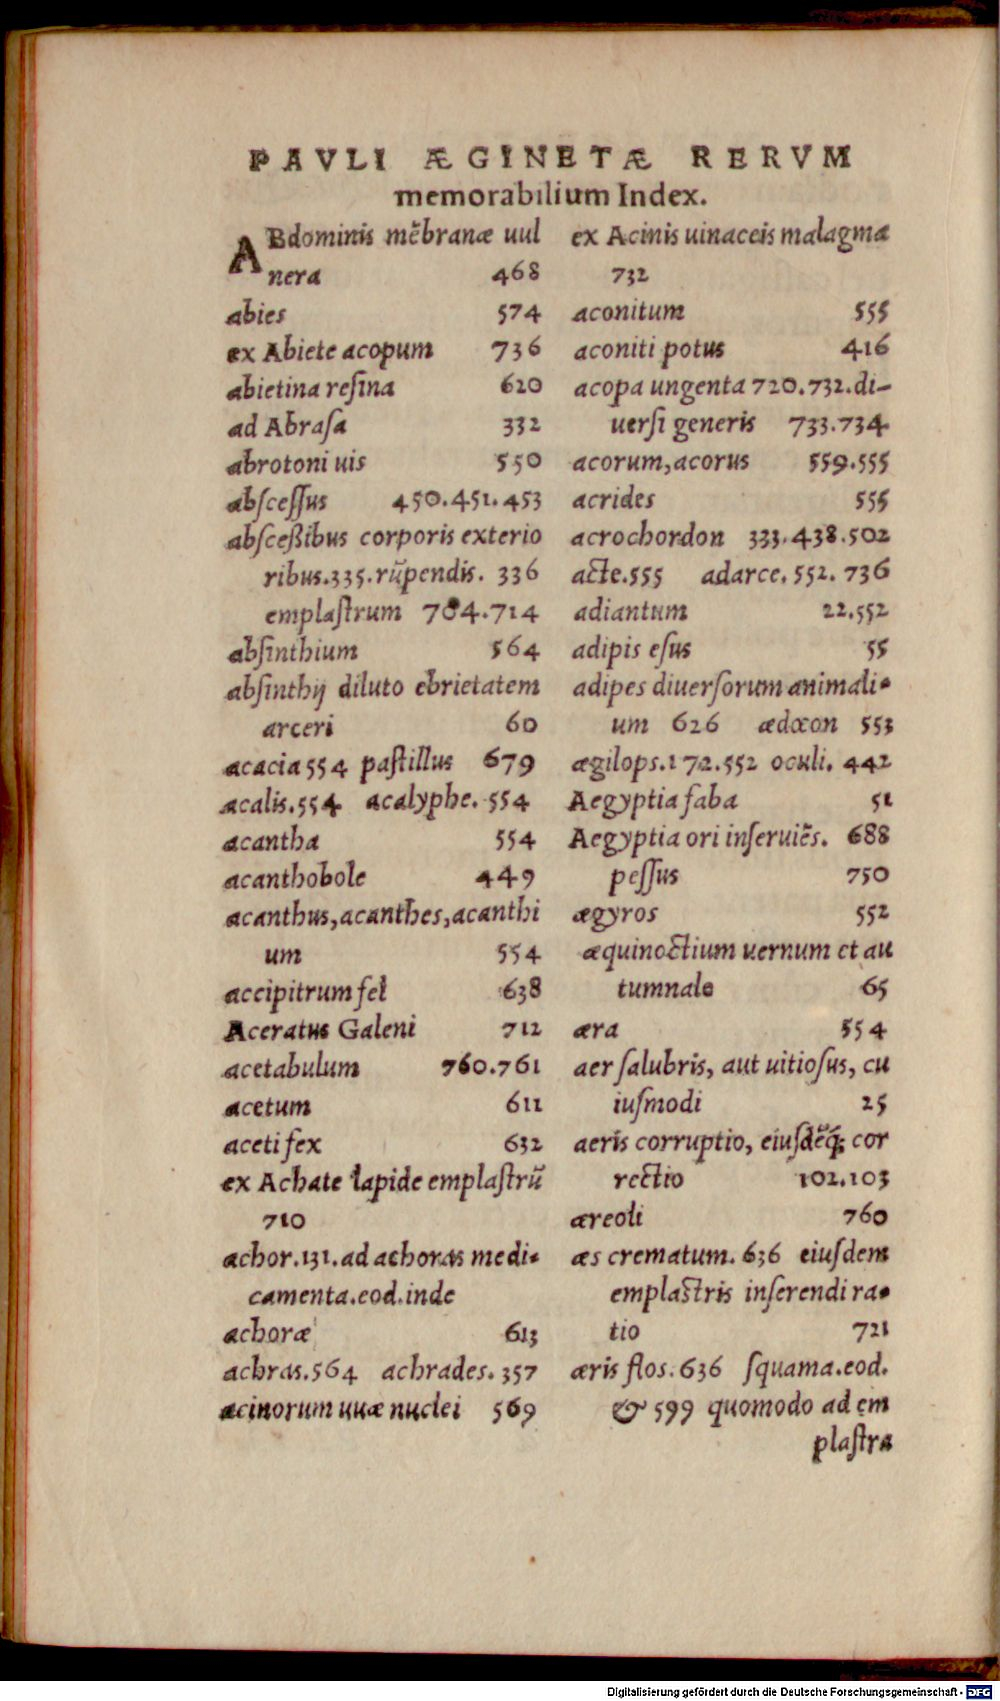 PAVLI ÆGINETÆ RERVM
memorabilium Index.
ABdominis mẽbranæ uul
nera 468
abies 574
ex Abiete acopum 736
abietina reſina 620
ad Abraſa 332
abrotoni uis 550
abſceſſus 450.451.453
abſceßibus corporis exterio
ribus.335.rũpendis. 336
emplaſtrum 704.714
abſinthium 564
abſinthij diluto ebrietatem
arceri 60
acacia 554 paſtillus 679
acalis.554 acalyphe. 554
acantha 554
acanthobole 449
acanthus, acanthes, acanthi
um 554
accipitrum fel 638
Aceratus Galeni 712
acetabulum 760.761
acetum 611
aceti fex 632
ex Achate lapide emplaſtrũ
710
achor.131.ad achoras medi-
camenta.eod.inde
achoræ 613
achras.564 achrades. 357
acinorum uuæ nuclei 569
ex Acinis uinaceis malagma
732
aconitum 555
aconiti potus 416
acopa ungenta 720.732.di-
uerſi generis 733.734
acorum, acorus 559.555
acrides 555
acrochordon 333.438.502
acte.555 adarce. 552. 736
adiantum 22.552
adipis eſus 55
adipes diuerſorum animali-
um 626 ædœon 553
ægilops.172.552 oculi. 442
Aegyptia faba 51
Aegyptia ori inſeruiẽs. 688
peſſus 750
ægyros 552
æquinoctium uernum et au
tumnale 65
æra 554
aer ſalubris, aut uitioſus, cu
iuſmodi 25
aeris corruptio, eiuſdẽq́; cor
rectio 102.103
æreoli 760
æs crematum. 636 eiuſdem
emplaſtris inſerendi ra-
tio 721
æris flos. 636 ſquama.eod.
& 599 quomodo ad em
plaſtra
Digitalisierung gefördert durch die Deutsche Forschungsgemeinschaft - DFG